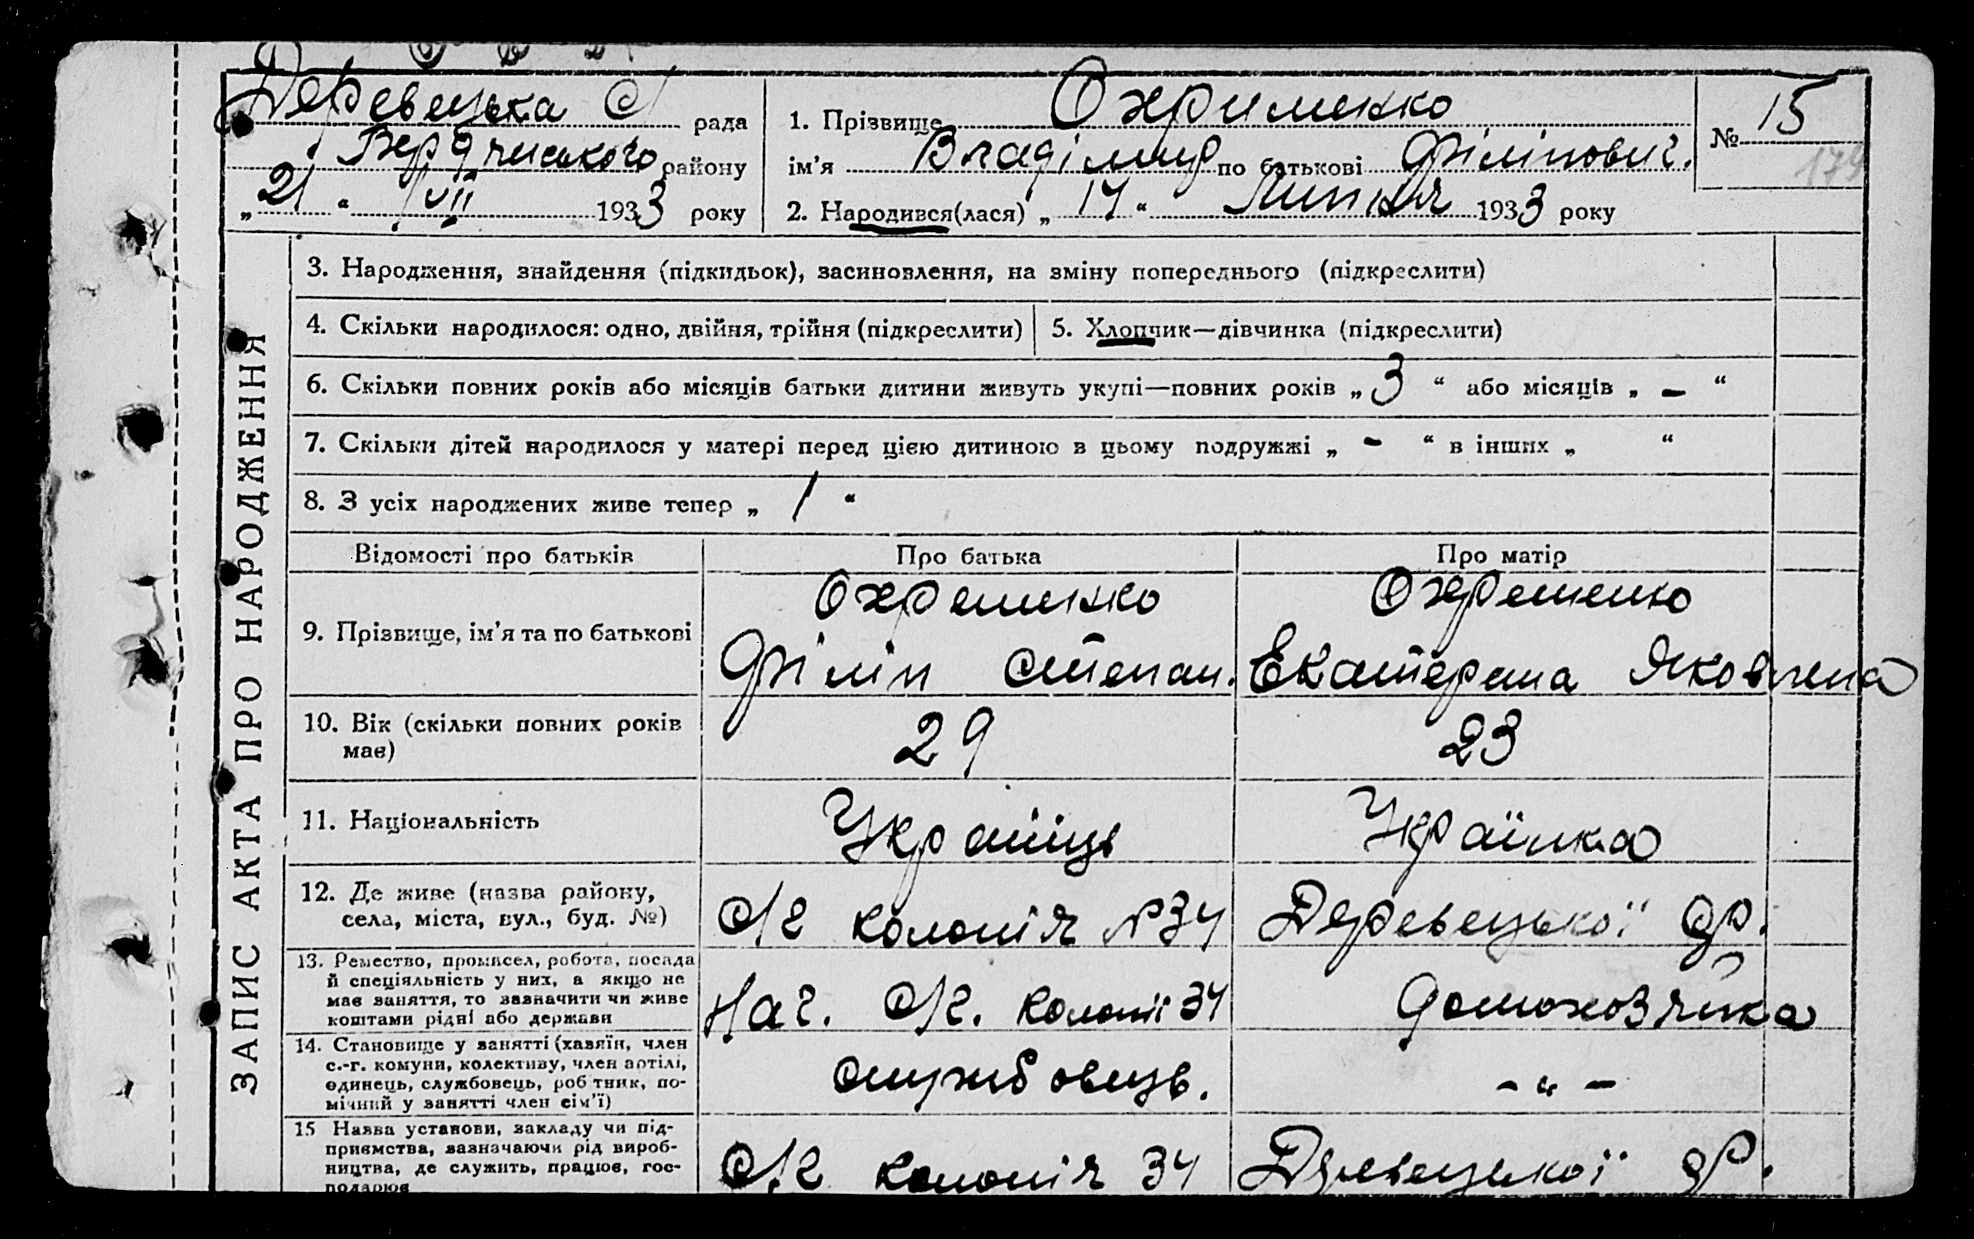 Деревецька С/ рада
Бердичиського району
„ 21 “ VII 1933 року
1. Прізвище Охрименко
ім’я Владімир по батькові Філіпович.
2. Народився(лася) „ 14 “ Липня 1933 року
№ 15
179
ЗАПИС АКТА ПРО НАРОДЖЕННЯ
3. Народження, знайдення (підкидьок), засиновлення, на зміну попереднього (підкреслити)
4. Скільки народилося: одно, двійня, трійня (підкреслити)
5. Хлопчик—дівчинка (підкреслити)
6. Скільки повних років або місяців батьки дитини живуть укупі—повних років „ 3 “ або місяців „ – “
7. Скільки дітей народилося у матері перед цією дитиною в цьому подружжі „ – “ в інших „ “
8. З усіх народжених живе тепер „ 1 “
Відомості про батьків
Про батька
Про матір
9. Прізвище, ім’я та по батькові
Охременко
Філіп Степан.
Охременко
Екатерина Яковлена
10. Вік (скільки повних років
має)
29
23
11. Національність
Українць
Українка
12. Де живе (назва району,
села, міста, вул., буд. №)
С/г колонія №34
Деревецької ср.
13. Ремество, промисел, робота, посада
й спеціяльність у них, а якщо не
має заняття, то зазначити чи живе
коштами рідні або держави
Нач. С/г. колонії 34
домохозяйка
14. Становище у занятті (хазяїн, член
с.-г. комуни, колективу, член артілі,
одинець, службовець, робтник, по-
мічний у занятті член сім’ї)
службовець.
– „ –
15 Назва установи, закладу чи під-
приємства, зазначаючи рід вироб-
ництва, де служить, працює, гос-
подарює
С/г колонія 34
Деревецької ср.